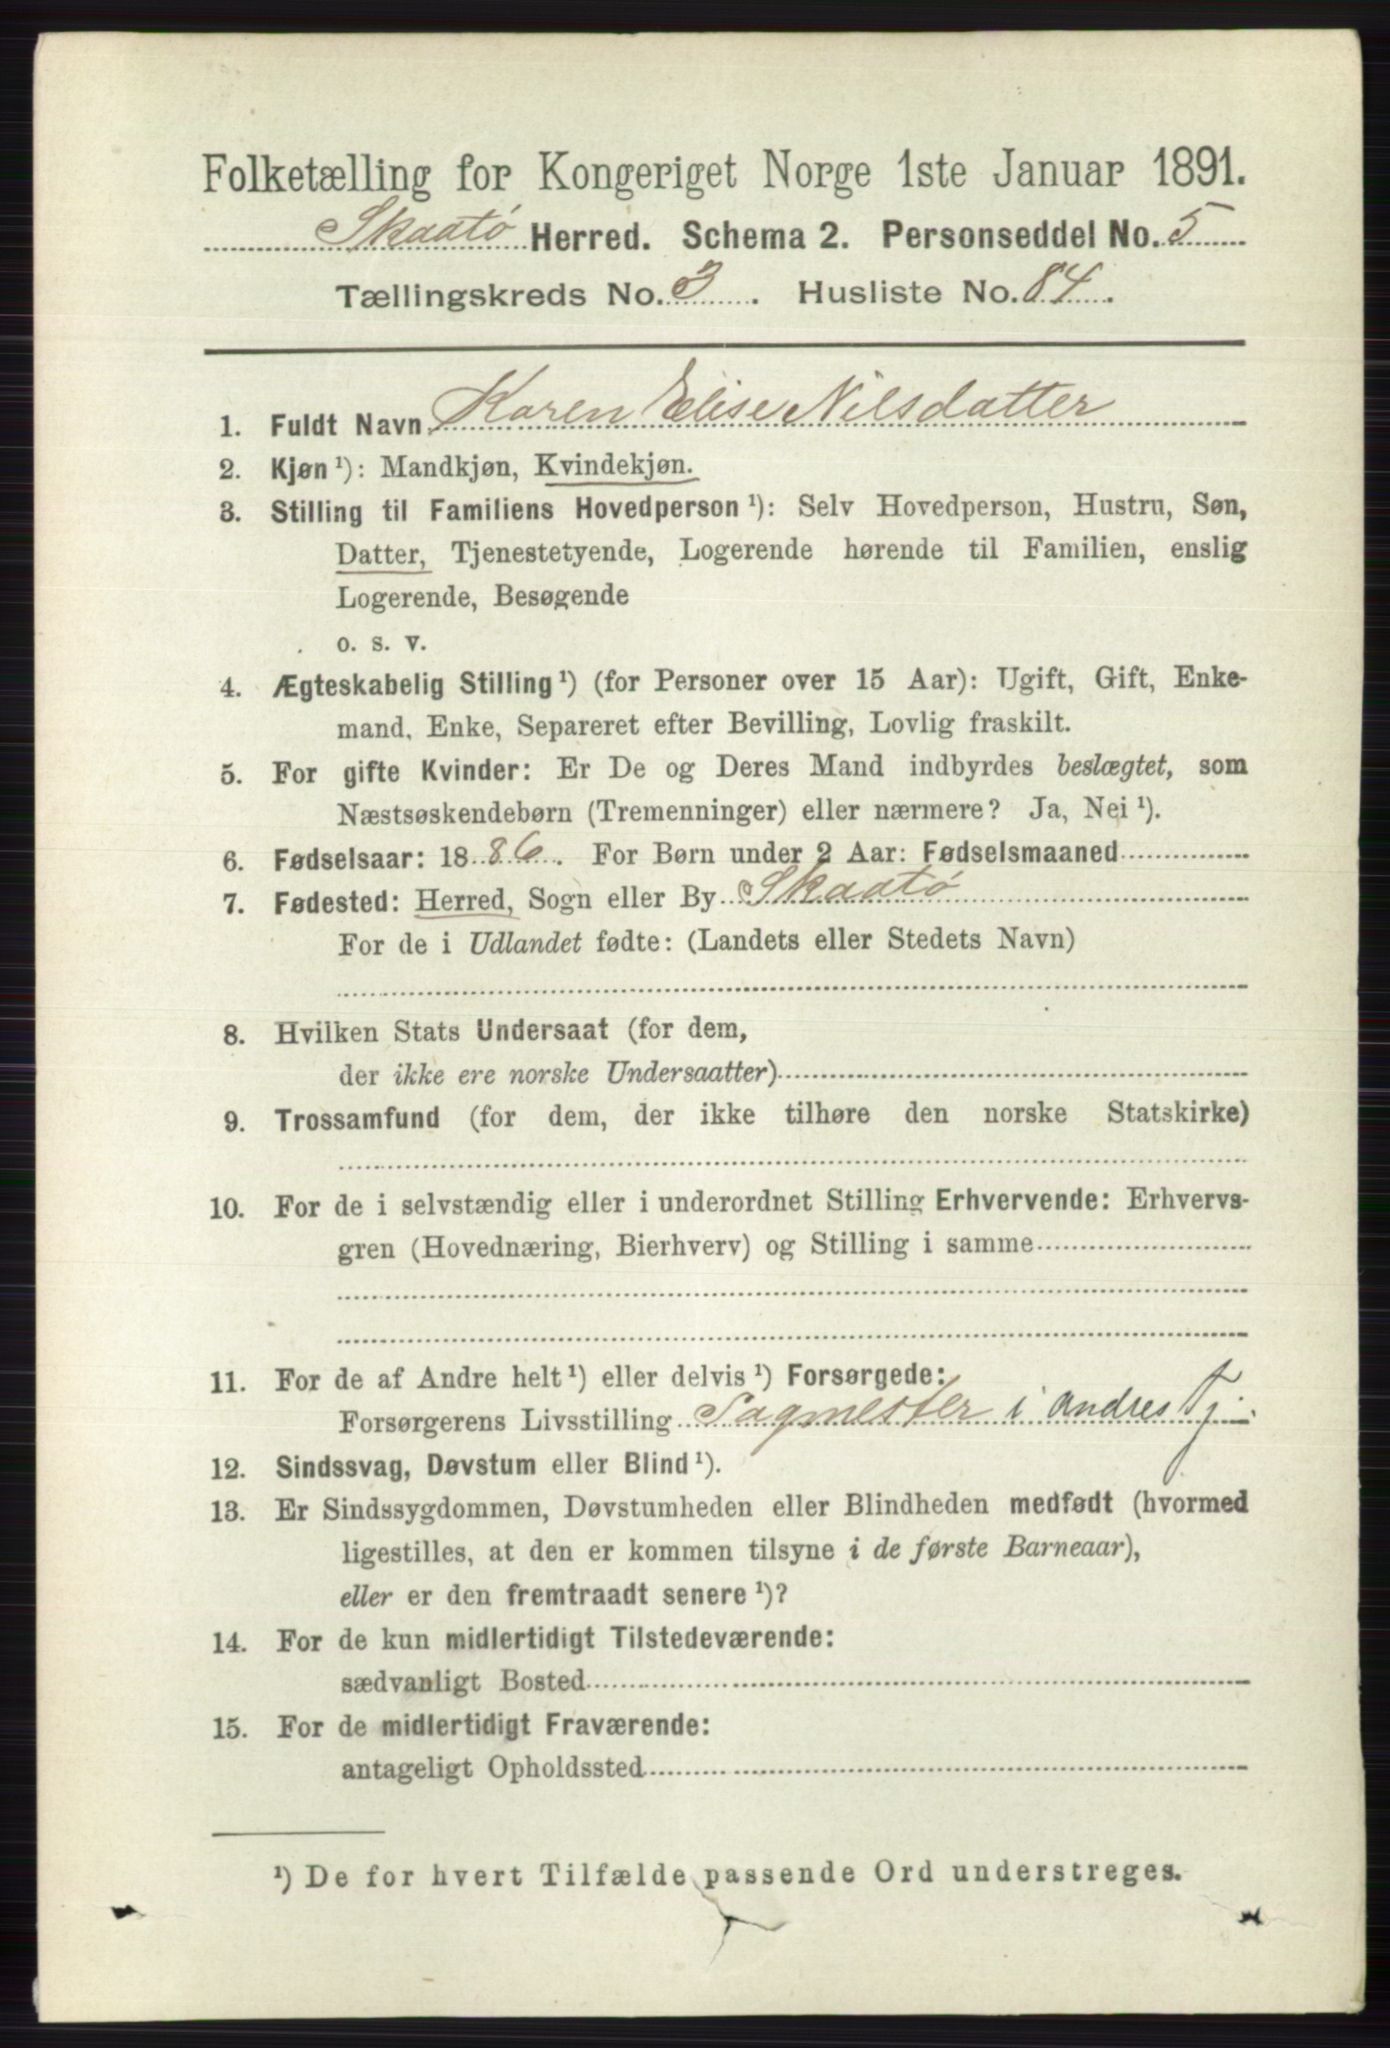 Folketælling for Kongeriget Norge 1ste Januar 1891.
Skaatö Herred. Schema 2. Personseddel No. 5
Tællingskreds No. 3. Husliste No. 84.
1. Fuldt Navn Karen Elise Nilsdatter
2. Kjøn ¹): Mandkjøn, Kvindekjøn.
3. Stilling til Familiens Hovedperson ¹): Selv Hovedperson, Hustru, Søn,
Datter, Tjenestetyende, Logerende hørende til Familien, enslig
Logerende, Besøgende
o. s. v.
4. Ægteskabelig Stilling ¹) (for Personer over 15 Aar): Ugift, Gift, Enke-
mand, Enke, Separeret efter Bevilling, Lovlig fraskilt.
5. For gifte Kvinder: Er De og Deres Mand indbyrdes beslægtet, som
Næstsøskendebørn (Tremenninger) eller nærmere? Ja, Nei ¹).
6. Fødselsaar: 1886. For Børn under 2 Aar: Fødselsmaaned
7. Fødested: Herred, Sogn eller By Skaatö
For de i Udlandet fødte: (Landets eller Stedets Navn)
8. Hvilken Stats Undersaat (for dem,
der ikke ere norske Undersaatter)
9. Trossamfund (for dem, der ikke tilhøre den norske Statskirke)
10. For de i selvstændig eller i underordnet Stilling Erhvervende: Erhvervs-
gren (Hovednæring, Bierhverv) og Stilling i samme
11. For de af Andre helt ¹) eller delvis ¹) Forsørgede:
Forsørgerens Livsstilling Sagmester i andres Tj.
12. Sindssvag, Døvstum eller Blind ¹).
13. Er Sindssygdommen, Døvstumheden eller Blindheden medfødt (hvormed
ligestilles, at den er kommen tilsyne i de første Barneaar),
eller er den fremtraadt senere ¹)?
14. For de kun midlertidigt Tilstedeværende:
sædvanligt Bosted
15. For de midlertidigt Fraværende:
antageligt Opholdssted
¹) De for hvert Tilfælde passende Ord understreges.